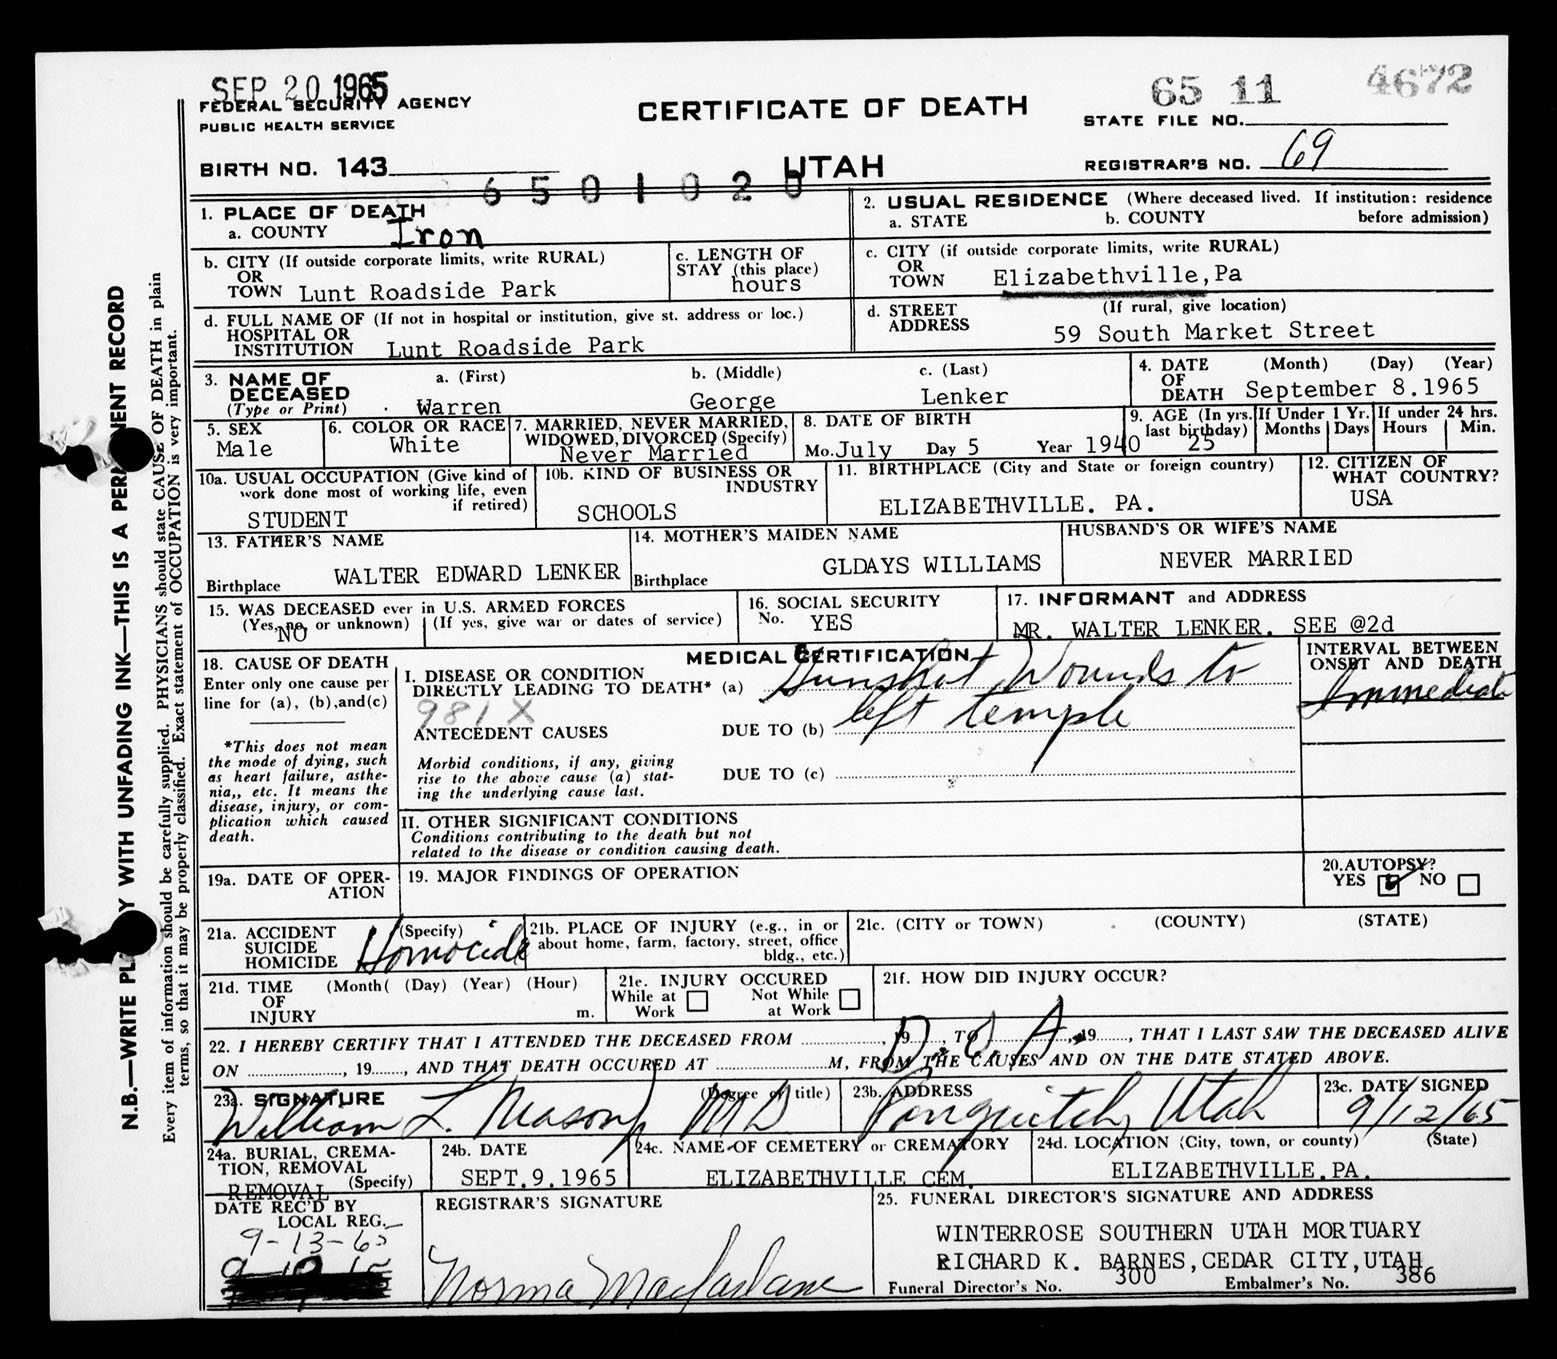 SEP 20 1965
FEDERAL SECURITY AGENCY
PUBLIC HEALTH SERVICE
CERTIFICATE OF DEATH
65 11 4672
STATE FILE NO.
BIRTH NO. 143
UTAH
REGISTRAR'S NO. 69
6501020
1. PLACE OF DEATH
a. COUNTY Iron
2. USUAL RESIDENCE (Where deceased lived. If institution: residence before admission)
a. STATE b. COUNTY
b. CITY (If outside corporate limits, write RURAL)
OR
TOWN Lunt Roadside Park
c. LENGTH OF
STAY (this place)
hours
c. CITY (if outside corporate limits, write RURAL)
OR
TOWN Elizabethville, Pa
d. FULL NAME OF (If not in hospital or institution, give st. address or loc.)
HOSPITAL OR
INSTITUTION Lunt Roadside Park
d. STREET (If rural, give location)
ADDRESS 59 South Market Street
3. NAME OF
DECEASED
(Type or Print)
a. (First) b. (Middle) c. (Last)
Warren George Lenker
4. DATE (Month) (Day) (Year)
OF
DEATH September 8.1965
5. SEX
Male
6. COLOR OR RACE
White
7. MARRIED, NEVER MARRIED,
WIDOWED, DIVORCED (Specify)
Never Married
8. DATE OF BIRTH
Mo. July Day 5 Year 1940
9. AGE (In yrs.
last birthday)
25
If Under 1 Yr.
Months Days
If under 24 hrs.
Hours Min.
10a. USUAL OCCUPATION (Give kind of
work done most of working life, even
if retired)
STUDENT
10b. KIND OF BUSINESS OR
INDUSTRY
SCHOOLS
11. BIRTHPLACE (City and State or foreign country)
ELIZABETHVILLE. PA.
12. CITIZEN OF
WHAT COUNTRY?
USA
13. FATHER'S NAME
Birthplace WALTER EDWARD LENKER
14. MOTHER'S MAIDEN NAME
GLDAYS WILLIAMS
Birthplace
HUSBAND'S OR WIFE'S NAME
NEVER MARRIED
15. WAS DECEASED ever in U.S. ARMED FORCES
(Yes, no, or unknown) (If yes, give war or dates of service)
NO
16. SOCIAL SECURITY
No. YES
17. INFORMANT and ADDRESS
MR. WALTER LENKER. SEE @2d
18. CAUSE OF DEATH
Enter only one cause per
line for (a), (b),and(c)
*This does not mean
the mode of dying, such
as heart failure, asthe-
nia,, etc. It means the
disease, injury, or com-
plication which caused
death.
MEDICAL CERTIFICATION
I. DISEASE OR CONDITION
DIRECTLY LEADING TO DEATH* (a) Gunshot Wounds to
981X
ANTECEDENT CAUSES DUE TO (b) left temple
Morbid conditions, if any, giving
rise to the above cause (a) stat-
ing the underlying cause last.
DUE TO (c)
INTERVAL BETWEEN
ONSET AND DEATH
Immediate
II. OTHER SIGNIFICANT CONDITIONS
Conditions contributing to the death but not
related to the disease or condition causing death.
19a. DATE OF OPER-
ATION
19. MAJOR FINDINGS OF OPERATION
20. AUTOPSY?
YES NO
21a. ACCIDENT (Specify)
SUICIDE
HOMICIDE Homocide
21b. PLACE OF INJURY (e.g., in or
about home, farm, factory, street, office
bldg., etc.)
21c. (CITY or TOWN) (COUNTY) (STATE)
21d. TIME (Month( (Day) (Year) (Hour)
OF
INJURY m.
21e. INJURY OCCURED
While at Work Not While at Work
21f. HOW DID INJURY OCCUR?
22. I HEREBY CERTIFY THAT I ATTENDED THE DECEASED FROM , 19 , TO , 19 , THAT I LAST SAW THE DECEASED ALIVE
D.O.A.
ON , 19 , AND THAT DEATH OCCURED AT M, FROM THE CAUSES AND ON THE DATE STATED ABOVE.
23a. SIGNATURE (Degree or title)
William L. Mason, MD
23b. ADDRESS
Panguitch, Utah
23c. DATE SIGNED
9/12/65
24a. BURIAL, CREMA-
TION, REMOVAL
(Specify)
REMOVAL
24b. DATE
SEPT.9.1965
24c. NAME OF CEMETERY or CREMATORY
ELIZABETHVILLE CEM.
24d. LOCATION (City, town, or county) (State)
ELIZABETHVILLE.PA.
DATE REC'D BY
LOCAL REG.
9-13-65
REGISTRAR'S SIGNATURE
Norma Macfarlane
25. FUNERAL DIRECTOR'S SIGNATURE AND ADDRESS
WINTERROSE SOUTHERN UTAH MORTUARY
RICHARD K. BARNES,CEDAR CITY,UTAH
Funeral Director's No. 300 Embalmer's No. 386
N.B.—WRITE PLAINLY WITH UNFADING INK—THIS IS A PERMANENT RECORD
Every item of information should be carefully supplied. PHYSICIANS should state CAUSE OF DEATH in plain
terms, so that it may be properly classified. Exact statement of OCCUPATION is very important.